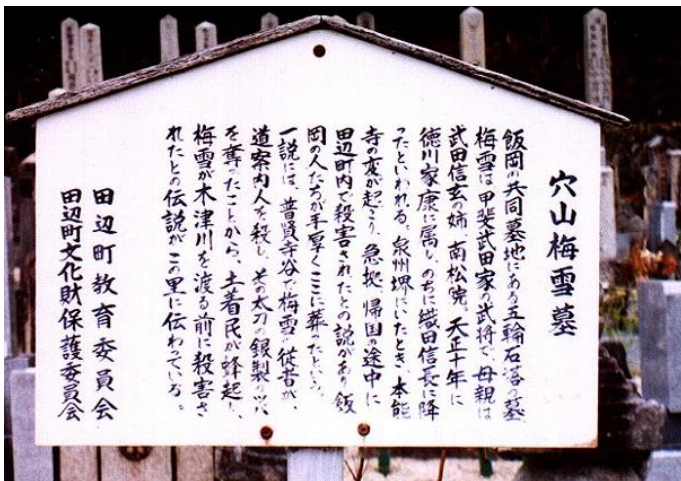 穴山梅雪墓
飯岡の共同墓地にある五輪石塔の墓。
梅雪は、甲斐武田家の武将で、母親は
武田信玄の姉、南松院。天正十年に
徳川家康に属し、のちに織田信長に降
ったといわれる。泉州堺にいたとき、本能
寺の変が起こり、急拠、帰国の途中に
田辺町内で殺害されたとの説があり飯
岡の人たちが手厚くここに葬ったという。
一説には、普賢寺谷で梅雪の従者が、
道案内人を殺し、その太刀の銀製の
を奪ったことから、土着民が蜂起し、
梅雪が木津川を渡る前に殺害さ
れたとの伝説がこの里に伝わっている。
田辺町教育委員会
田辺町文化財保護委員会